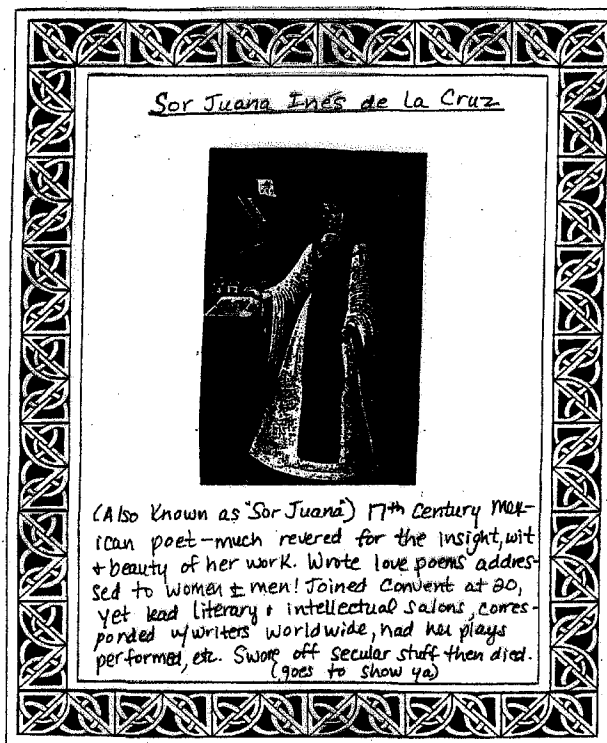 Sor Juana Inés de la Cruz
(Also Known as "Sor Juana") 17th Century Mex-
ican poet-much revered for the insight, wit
+ beauty of her work. Wrote love poems addres-
sed to women ± men! Joined Convent at 20,
yet lead literary + intellectual salons, corres-
ponded w/writers worldwide, had her plays
performed, etc. Swore off secular stuff then died.
(goes to show ya)